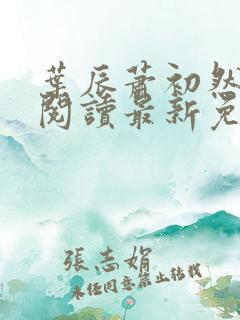 葉辰蕭初然
閱讀最新免
張志娟
未經同意禁止轉載